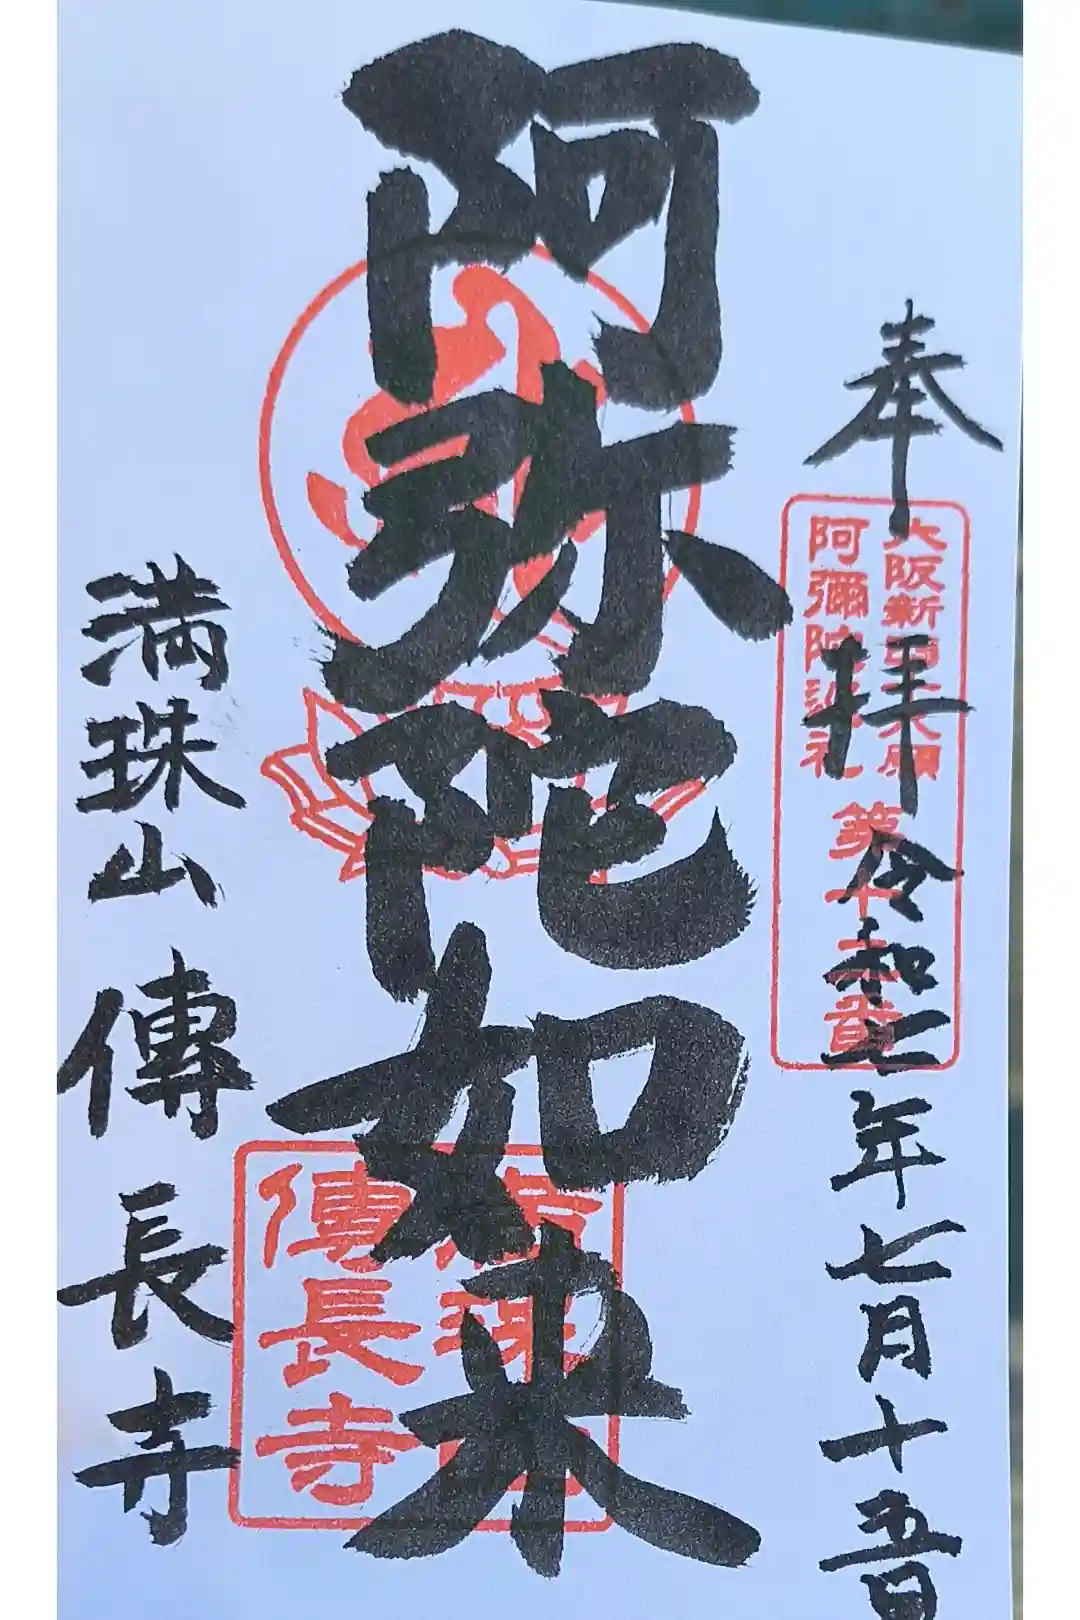 奉拝
令和七年七月十五日
大阪新四十八願
阿彌陀巡礼
第十三番
阿弥陀如来
満珠山
傳長寺
満珠山 傳長寺